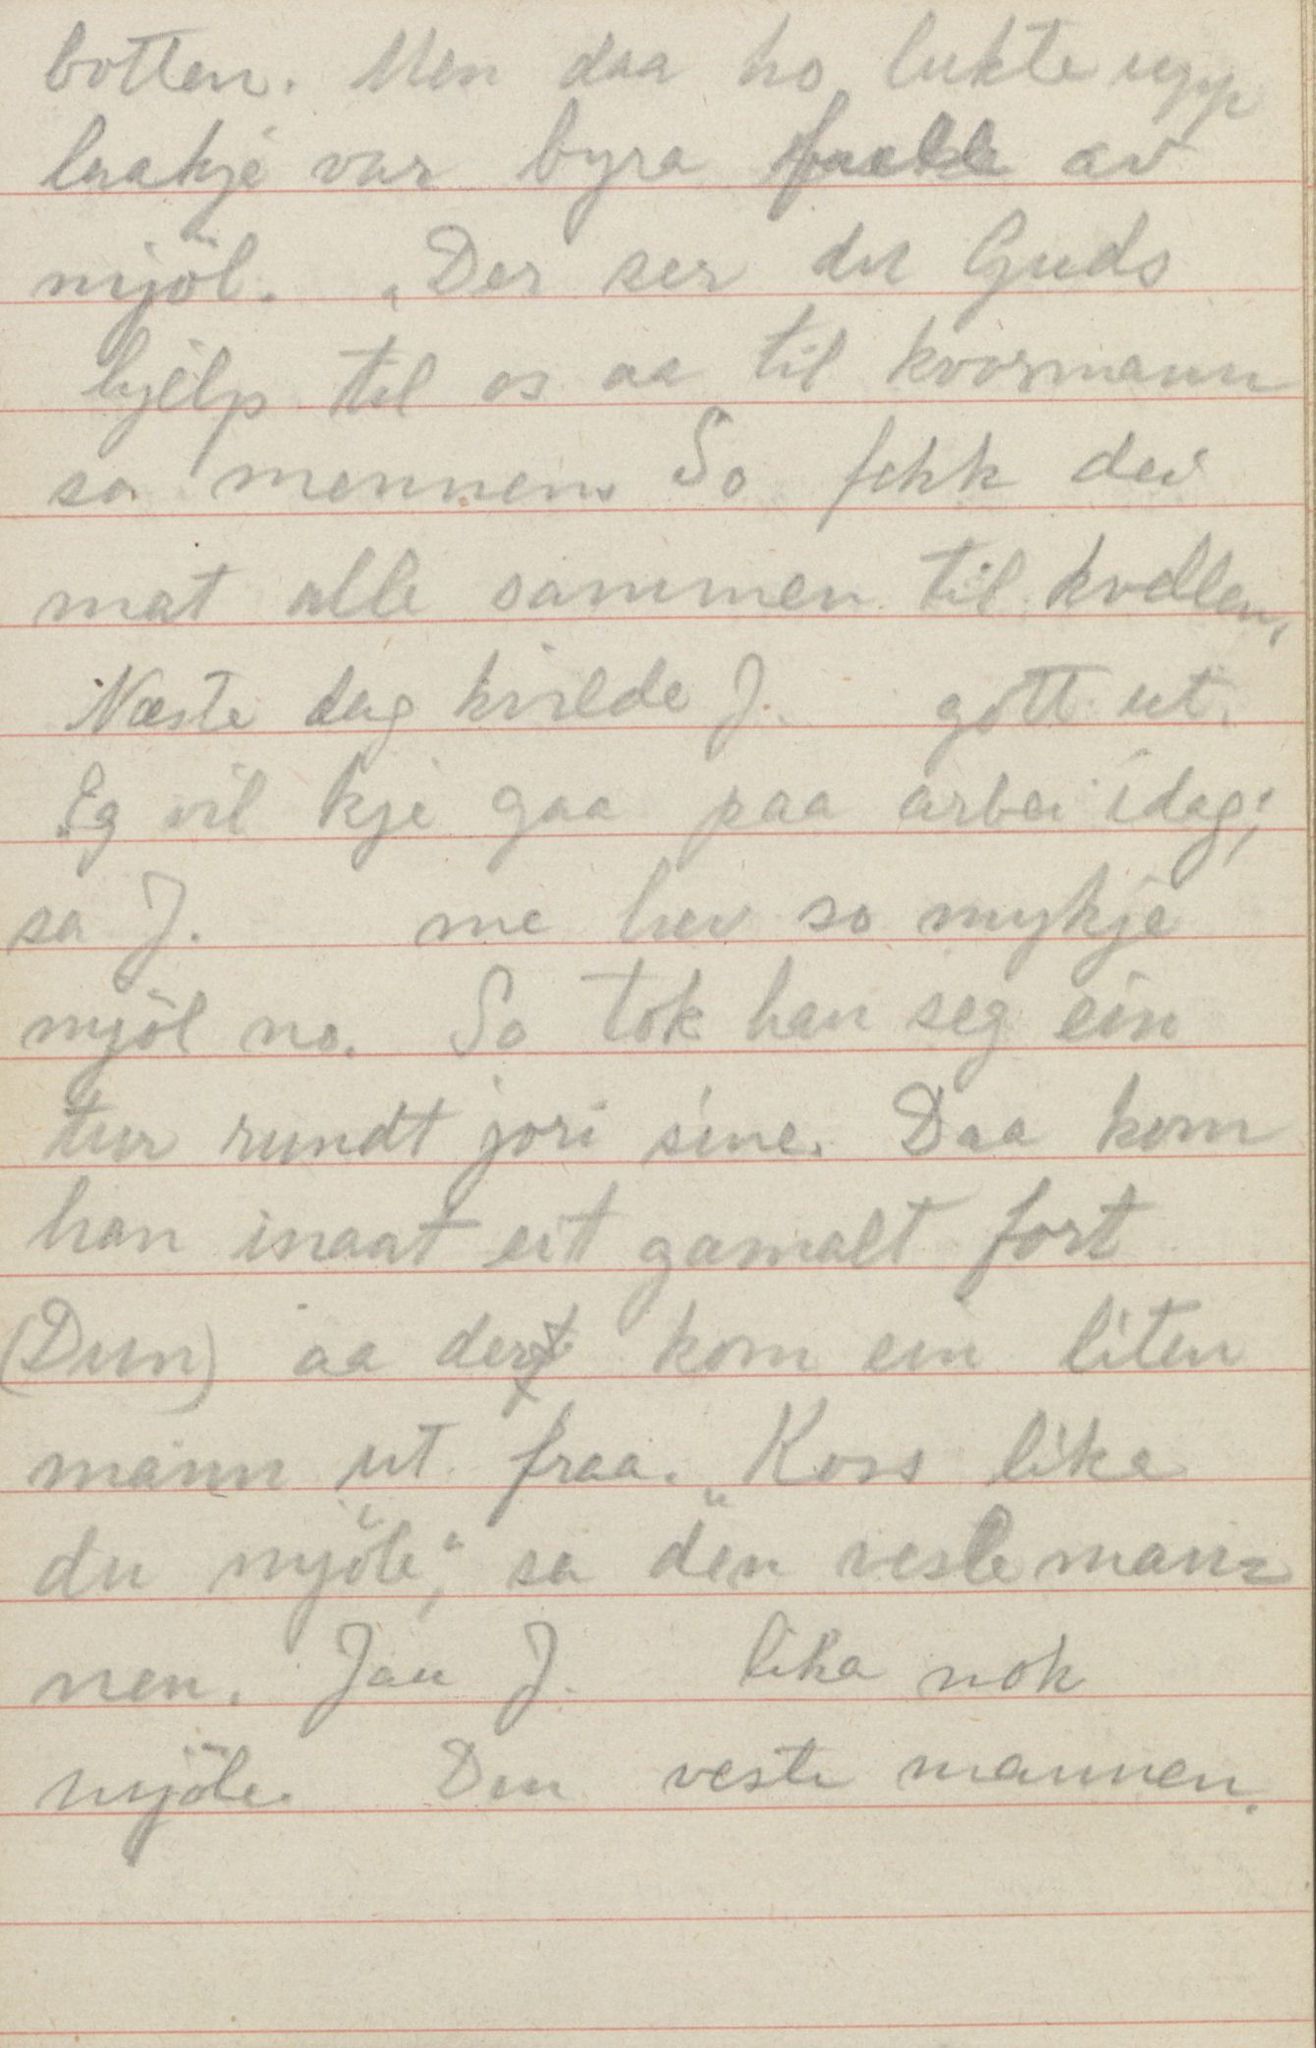 botten. Men daa ho lukte upp
laakje var byra av
mjöl. "Der ser du Guds
hjelp til os aa til kvormann
sa mennen. So fekk dei
mat alle sammen til kvellen.
Næste dag kvilde J. gott ut.
Eg vil kje gaa paa arbei idag;
sa J. me hev so mykje
mjöl no. So tok han seg ein
tur rundt jori sine. Daa kom
han inaat eit gamalt fort
(Dun) aa der kom ein liten
mann ut fraa. "Koss lika
du mjöle," sa den vesle man=
nen. Jau J. lika nok
mjöle. Den vesle mannen.